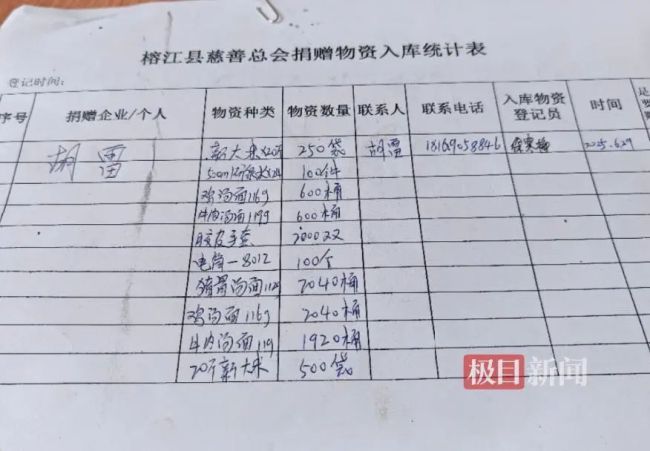 榕江县慈善总会捐赠物资入库统计表
登记时间：
序号 捐赠企业/个人 物资种类 物资数量 联系人 联系电话 入库物资登记员 时间
胡雷 新大米 250袋 胡雷 18169058846 2025.6.29
100件
鸡汤面116g 600桶
牛肉汤面119g 600桶
胶皮手套 2000双
电筒-8012 100个
猪骨汤面 2040桶
鸡汤面116g 2040桶
牛肉汤面119 1920桶
20斤新大米 500袋
极目新闻